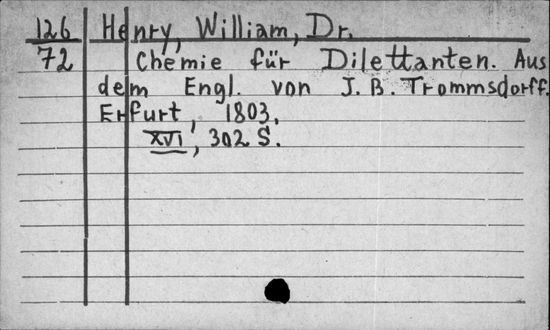 126 Henry, William, Dr.
72 Chemie für Dilettanten. Aus
dem Engl. von J. B. Trommsdorff.
Erfurt, 1803.
XVI, 302 S.